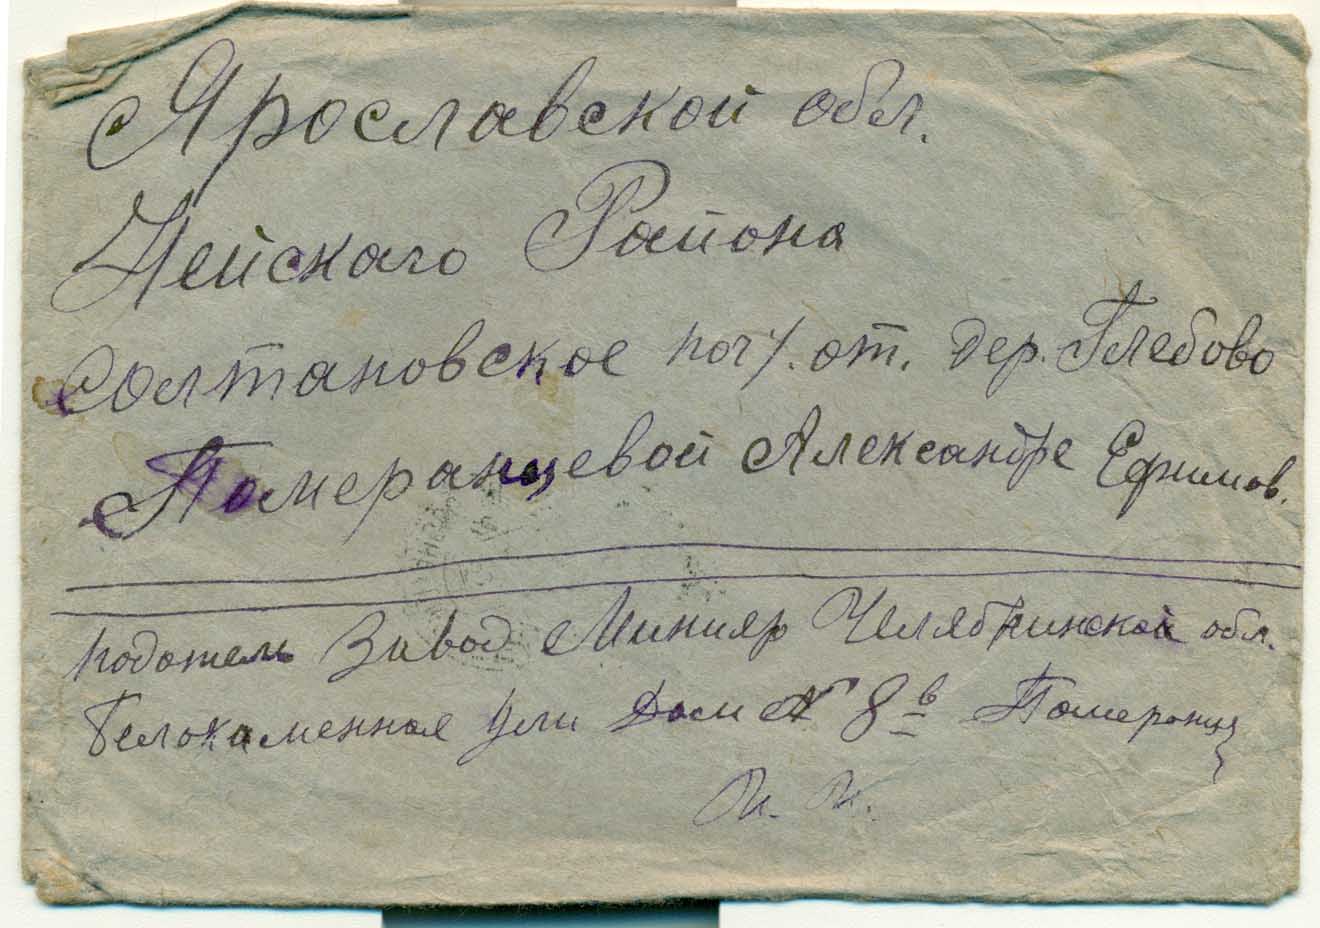 Ярославской обл.
Нейского Района
Солтановское поч. от. дер. Глебово
Померанцевой Александре Ефимов.
податель Завод Миньяр Челябинской обл.
Белокаменная ули Дом № 8 в Померанц